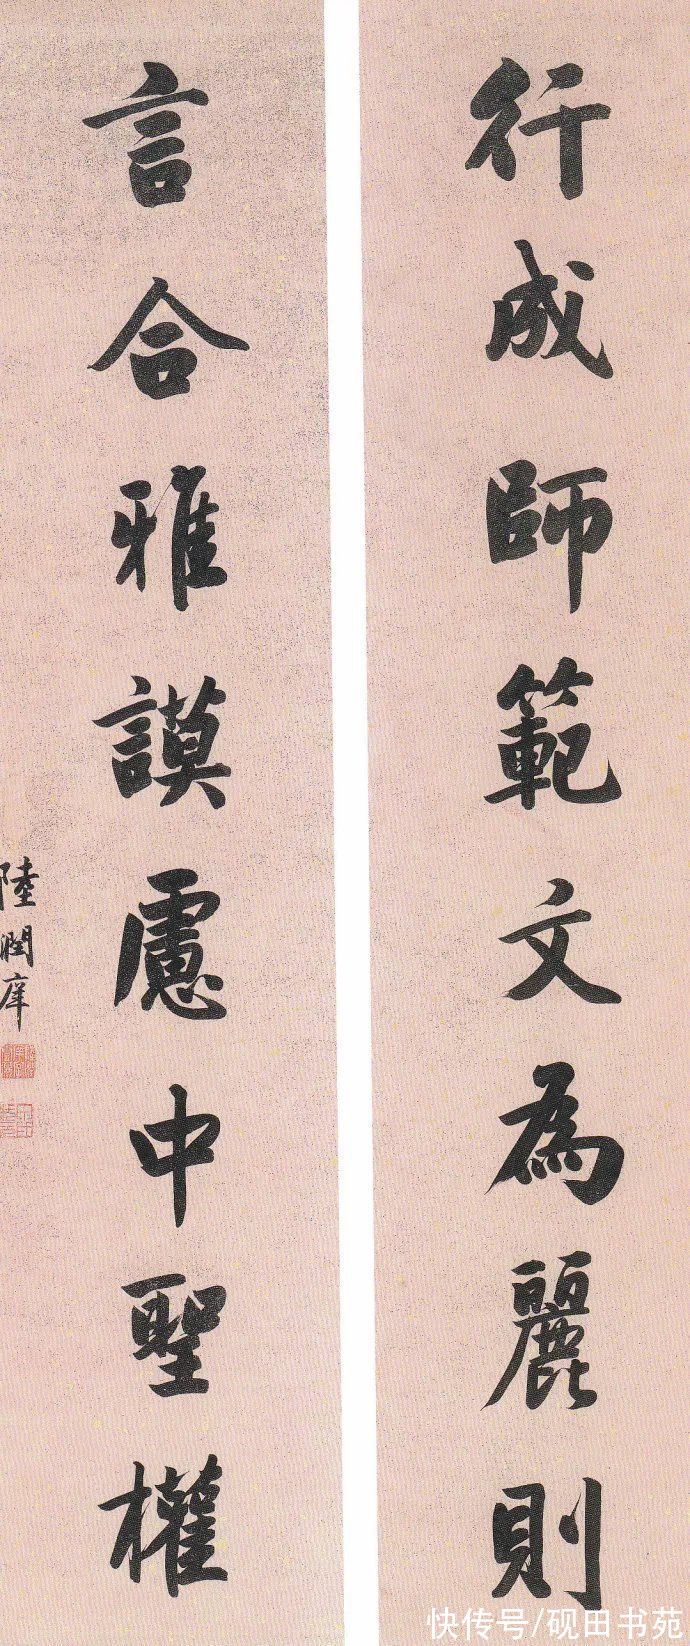 行成師範文為麗則
言合雅謨慮中聖權
陸潤庠
快传号/砚田书苑